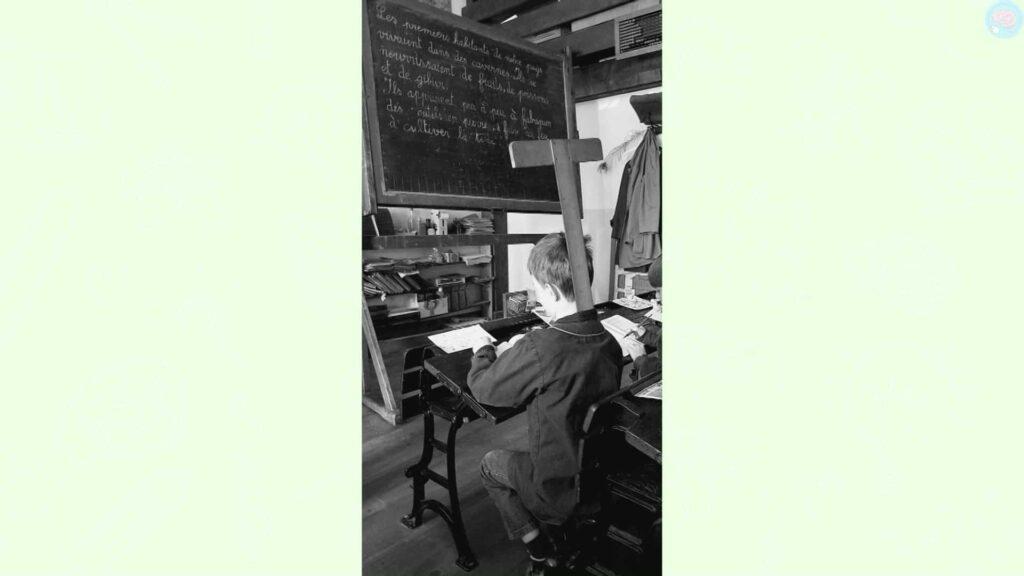 Les premiers habitants de notre pays
vivaient dans des cavernes. Ils se
nourrissaient de fruits, de poissons
et de gibier.
Ils apprirent peu à peu à fabriquer
des outils en pierre, à
à cultiver la terre.